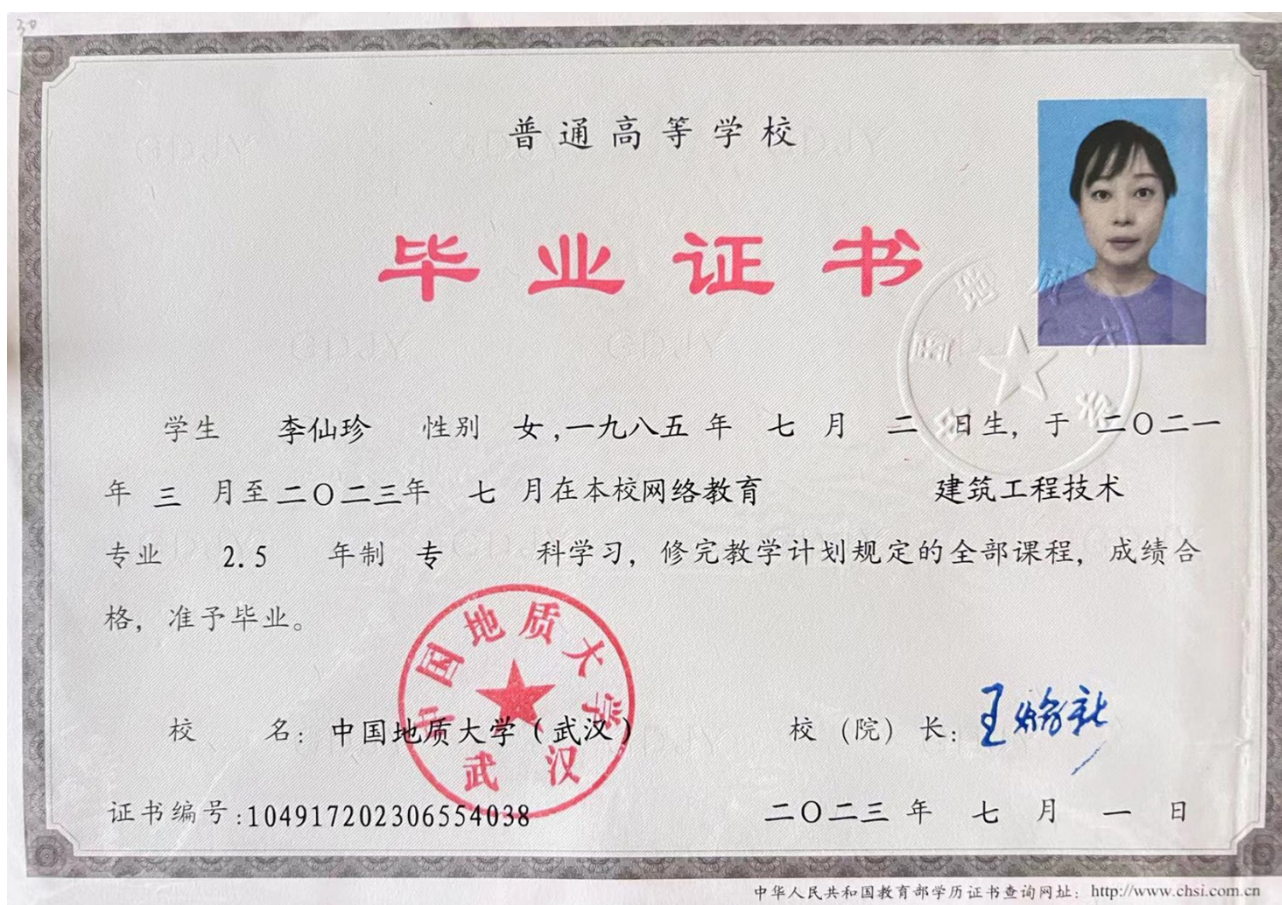 普通高等学校
毕业证书
学生 李仙珍 性别 女,一九八五 年 七 月 二 日生, 于 二〇二一
年 三 月至二〇二三年 七 月在本校网络教育 建筑工程技术
专业 2.5 年制 专 科学习, 修完教学计划规定的全部课程, 成绩合
格, 准予毕业。
中国地质大学
武汉
校 名: 中国地质大学(武汉) 校 (院) 长:
证书编号:104917202306554038 二〇二三 年 七 月 一 日
中华人民共和国教育部学历证书查询网址: http://www.chsi.com.cn